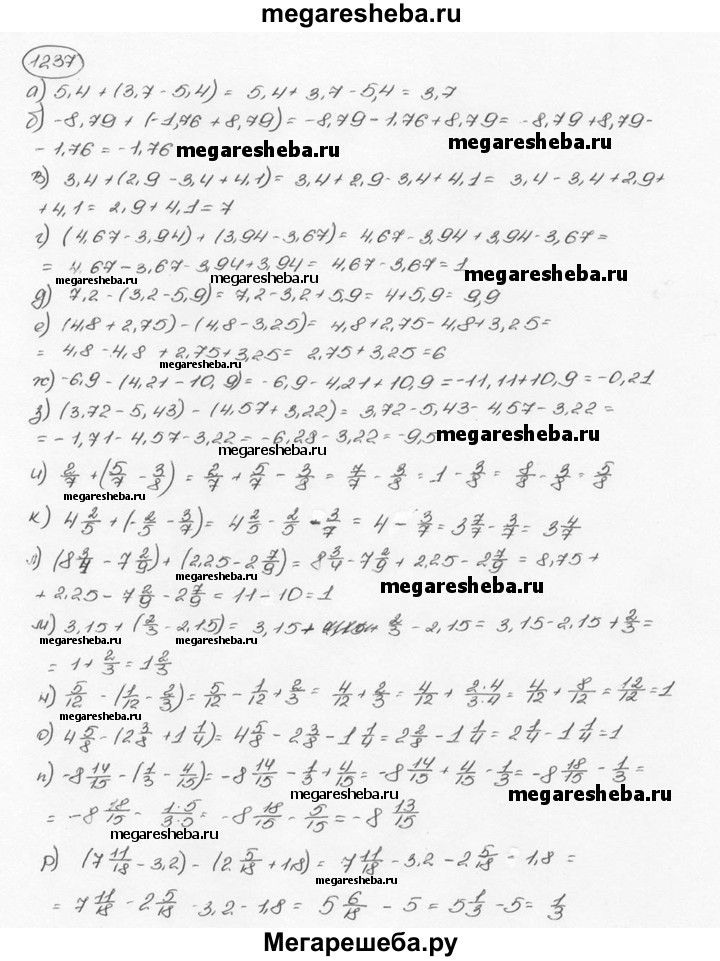 megaresheba.ru
1237
а) 5,4 + (3,7 - 5,4) = 5,4 + 3,7 - 5,4 = 3,7
б) -8,79 + (-1,76 + 8,79) = -8,79 - 1,76 + 8,79 = -8,79 + 8,79 -
- 1,76 = -1,76 megaresheba.ru megaresheba.ru
в) 3,4 + (2,9 - 3,4 + 4,1) = 3,4 + 2,9 - 3,4 + 4,1 = 3,4 - 3,4 + 2,9 +
+ 4,1 = 2,9 + 4,1 = 7
г) (4,67 - 3,94) + (3,94 - 3,67) = 4,67 - 3,94 + 3,94 - 3,67 =
= 4,67 - 3,67 - 3,94 + 3,94 = 4,67 - 3,67 = 1
megaresheba.ru megaresheba.ru megaresheba.ru
д) 7,2 - (3,2 - 5,9) = 7,2 - 3,2 + 5,9 = 4 + 5,9 = 9,9
е) (4,8 + 2,75) - (4,8 - 3,25) = 4,8 + 2,75 - 4,8 + 3,25 =
= 4,8 - 4,8 + 2,75 + 3,25 = 2,75 + 3,25 = 6
megaresheba.ru
ж) -6,9 - (4,21 - 10,9) = -6,9 - 4,21 + 10,9 = -11,11 + 10,9 = -0,21
з) (3,72 - 5,43) - (4,57 + 3,22) = 3,72 - 5,43 - 4,57 - 3,22 =
= -1,71 - 4,57 - 3,22 = -6,28 - 3,22 = -9,5 megaresheba.ru
megaresheba.ru
и) 2/7 + (5/7 - 3/8) = 2/7 + 5/7 - 3/8 = 7/7 - 3/8 = 1 - 3/8 = 8/8 - 3/8 = 5/8
megaresheba.ru
к) 4 2/5 + (-2/5 - 3/7) = 4 2/5 - 2/5 - 3/7 = 4 - 3/7 = 3 7/7 - 3/7 = 3 4/7
л) (8 3/4 - 7 2/9) + (2,25 - 2 7/9) = 8 3/4 - 7 2/9 + 2,25 - 2 7/9 = 8,75 +
megaresheba.ru
+ 2,25 - 7 2/9 - 2 7/9 = 11 - 10 = 1 megaresheba.ru
м) 3,15 + (2/3 - 2,15) = 3,15 + 2/3 - 2,15 = 3,15 - 2,15 + 2/3 =
megaresheba.ru megaresheba.ru
= 1 + 2/3 = 1 2/3
н) 5/12 - (1/12 - 2/3) = 5/12 - 1/12 + 2/3 = 4/12 + 2/3 = 4/12 + 2·4/3·4 = 4/12 + 8/12 = 12/12 = 1
megaresheba.ru
о) 4 5/8 - (2 3/8 + 1 1/4) = 4 5/8 - 2 3/8 - 1 1/4 = 2 2/8 - 1 1/4 = 2 1/4 - 1 1/4 = 1
п) -8 14/15 - (1/3 - 4/15) = -8 14/15 - 1/3 + 4/15 = -8 14/15 + 4/15 - 1/3 = -8 18/15 - 1/3 =
megaresheba.ru
= -8 18/15 - 1·5/3·5 = -8 18/15 - 5/15 = -8 13/15
megaresheba.ru
р) (7 11/18 - 3,2) - (2 5/18 + 1,8) = 7 11/18 - 3,2 - 2 5/18 - 1,8 =
megaresheba.ru
= 7 11/18 - 2 5/18 - 3,2 - 1,8 = 5 6/18 - 5 = 5 1/3 - 5 = 1/3
Мегарешеба.ру